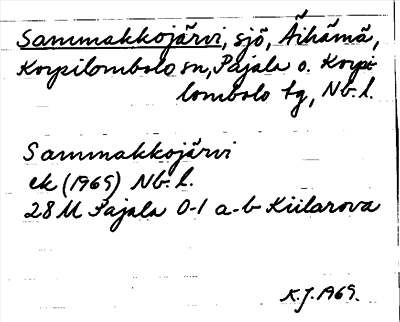 Sammakkojärvi, sjö, Äihämä,
Korpilombolo sn, Pajala o. Korpi-
lombolo tg, Nb. l.
Sammakkojärvi
ek (1969) Nb. l.
28 M Pajala 0-1 a-b Kiilarova
K.J. 1969.